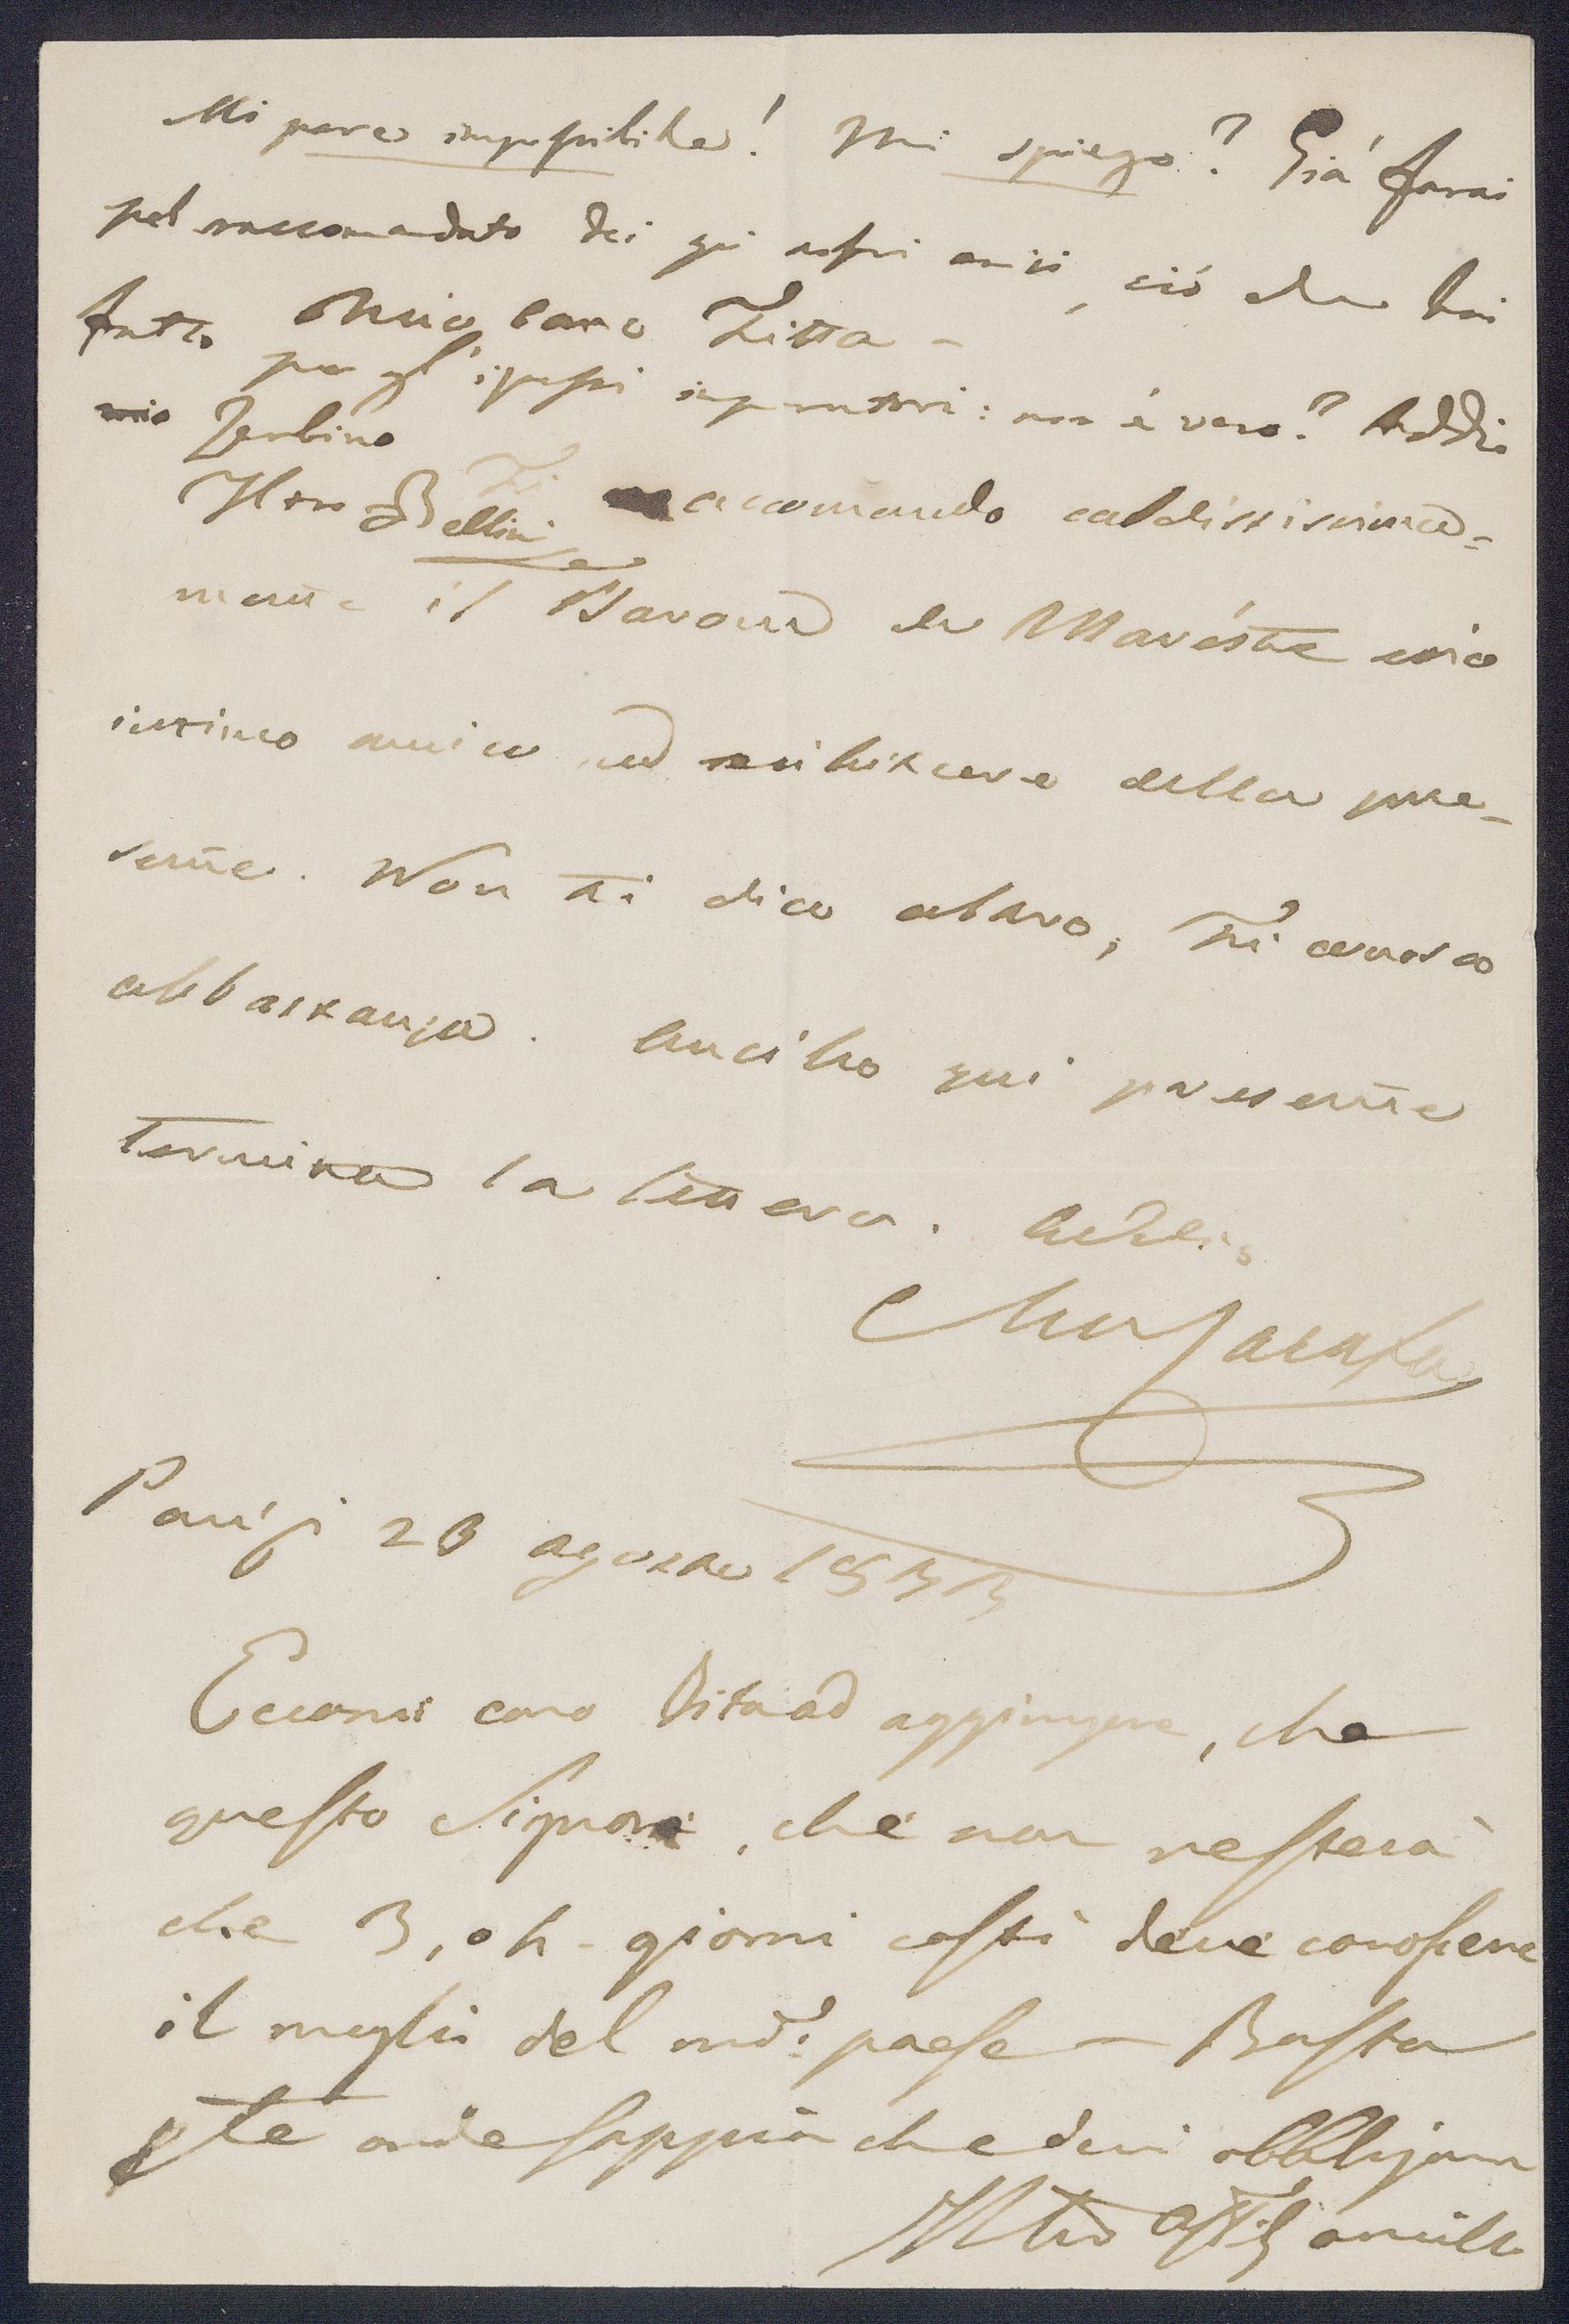 Mi pare impossibile! Mi spiego? Già farai
pel raccomandato dei qui nostri amici, ciò che hai
fatto
Mio Caro Zitta -
per gl'istessi imperatori: non è vero? Addio
mio Zerbino
Il tuo Bellini
Ti raccomando caldissima=
mente il Barone de Mareste mio
intimo amico, ed esibitore della pre-
sente. Non ti dico altro, Ti conosco
abbastanza. qui presente
termina la lettera. Addio
Carafa
Parigi 28 agosto 1833
Eccomi caro ad aggiungere, che
questo Signore, che non resterà
che 3, o 4 - giorni costì deve conoscere
il meglio del nro: paese - Basta
 onde sappia che devi
Il tuo